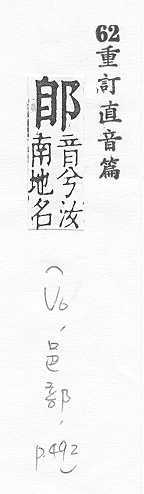 62重訂直音篇
郋
音兮汝
南地名
(V6,邑部,p.492